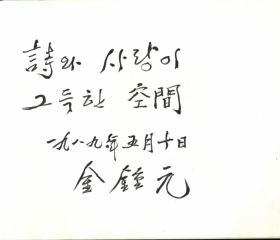 詩와 사랑이
그득한 空間
一九八九年五月十日
金鍾元